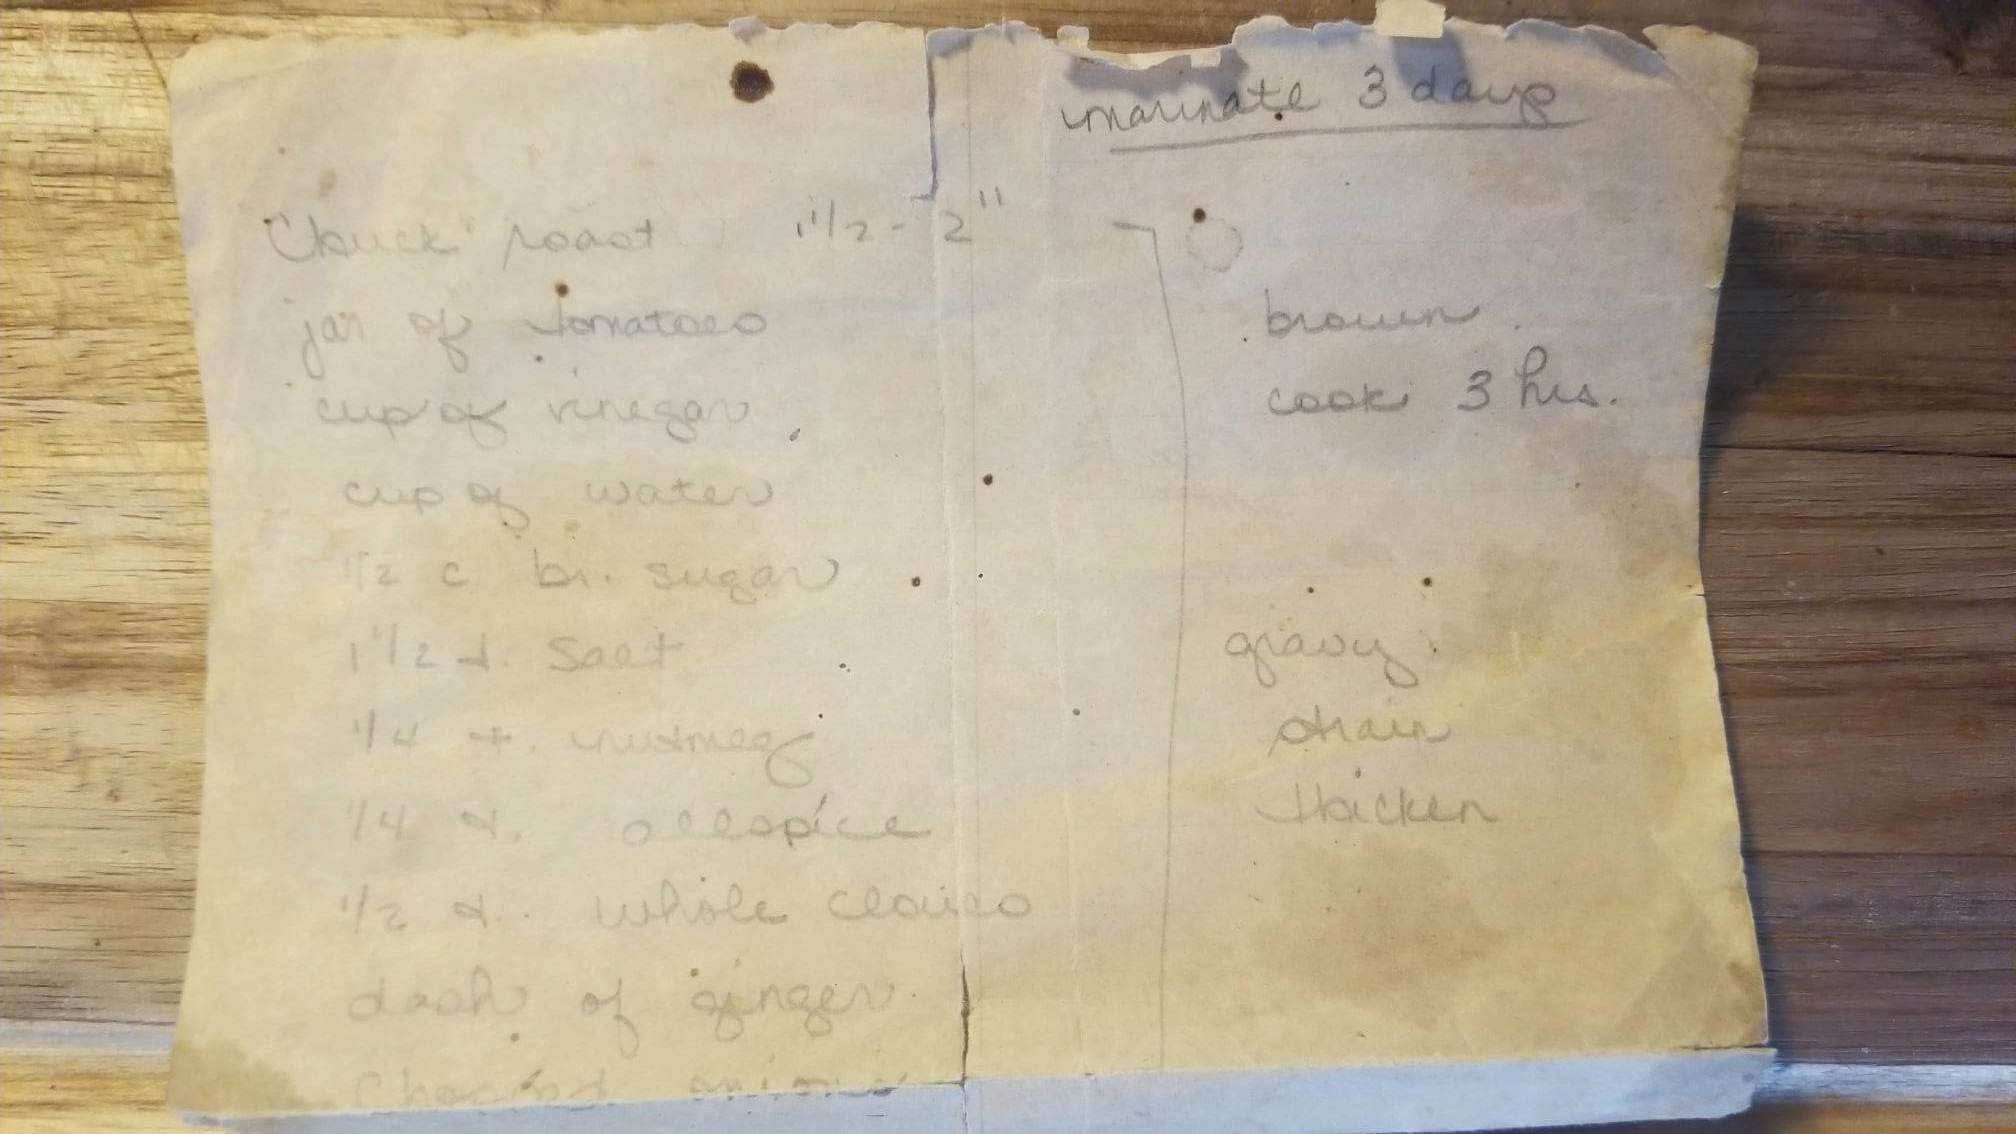 marinate 3 days
Chuck roast 1 1/2 - 2"
jar of tomatoes
cup of vinegar
cup of water
1/2 c br. sugar
1 1/2 t. salt
1/4 t. nutmeg
1/4 t. allspice
1/2 t. whole cloves
dash of ginger
Chopped onions
brown
cook 3 hrs.
gravy
strain
thicken